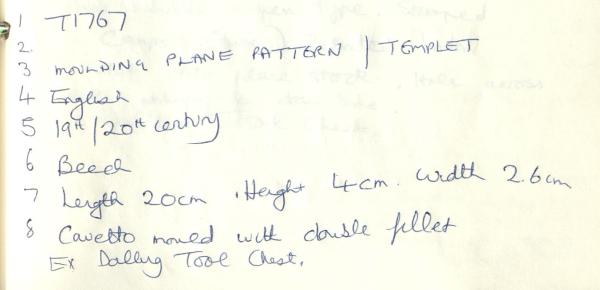 1 T1767
2.
3 MOULDING PLANE PATTERN / TEMPLET
4 English
5 19th/20th century
6 Beech
7 Length 20cm . Height 4cm. Width 2.6cm
8 Cavetto mould with double fillet
Ex Tool Chest.